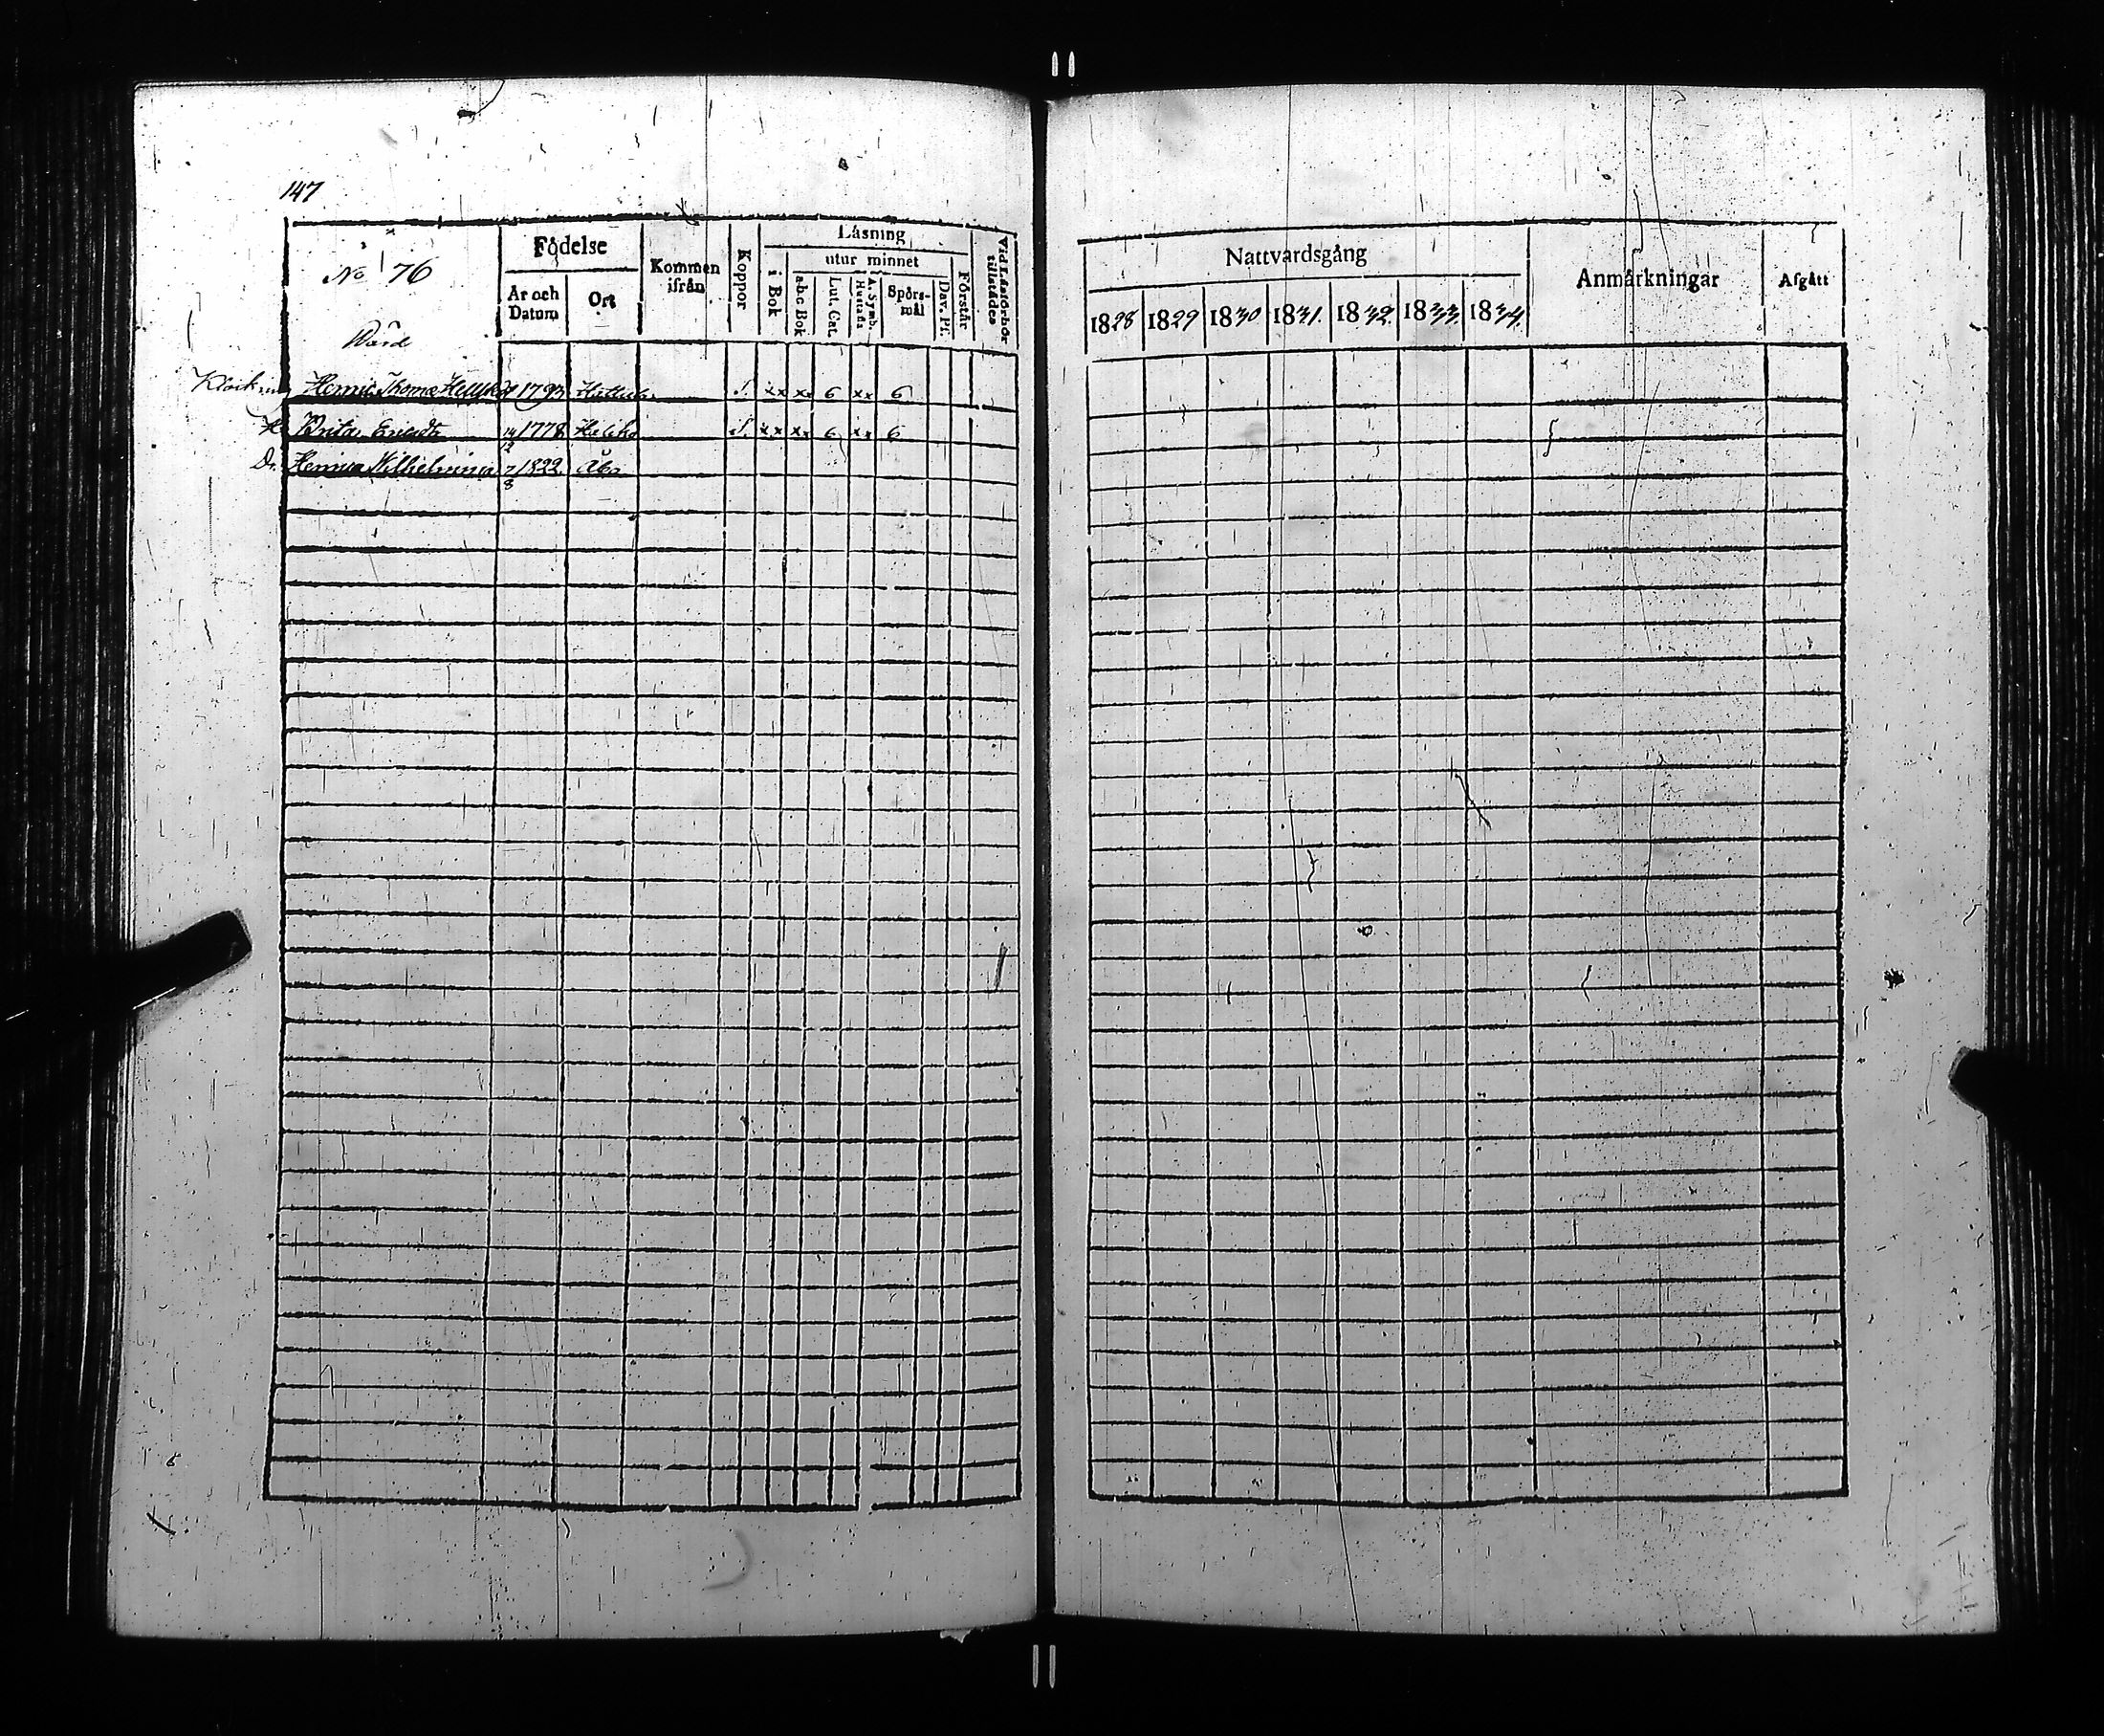 147
No 76
Wård
Födelse
År och Datum
Ort
Kommen ifrån
Koppor
Läsning
i Bok
utur minnet
a.b.c Bok
Lut. Cat.
A. Symb. Hustafla
Spörs-mål
Dav. Ps.
Förstår
Vid Läsförhör tillstädes
Nattvardsgång
1828 1829 1830 1831. 1832. 1833. 1834.
Anmärkningar
Afgått
Henric Thomas 1793 xx xx 6 xx 6
H. Brita 14/2 1778 xx xx 6 xx 6
Dr. Henrica Wilhelmina 7/8 1822. Åbo